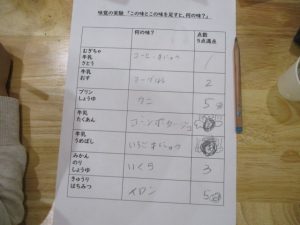 味覚の実験 「この味とこの味を足すと、何の味？」
何の味？
点数
5点満点
むぎちゃ
牛乳
さとう
コーヒーぎゅうにゅう
1
牛乳
おす
ヨーグルト
2
プリン
しょうゆ
ウニ
5
牛乳
たくあん
コーンポタージュ
牛乳
うめぼし
いちごぎゅうにゅう
みかん
のり
しょうゆ
いくら
3
きゅうり
はちみつ
メロン
5